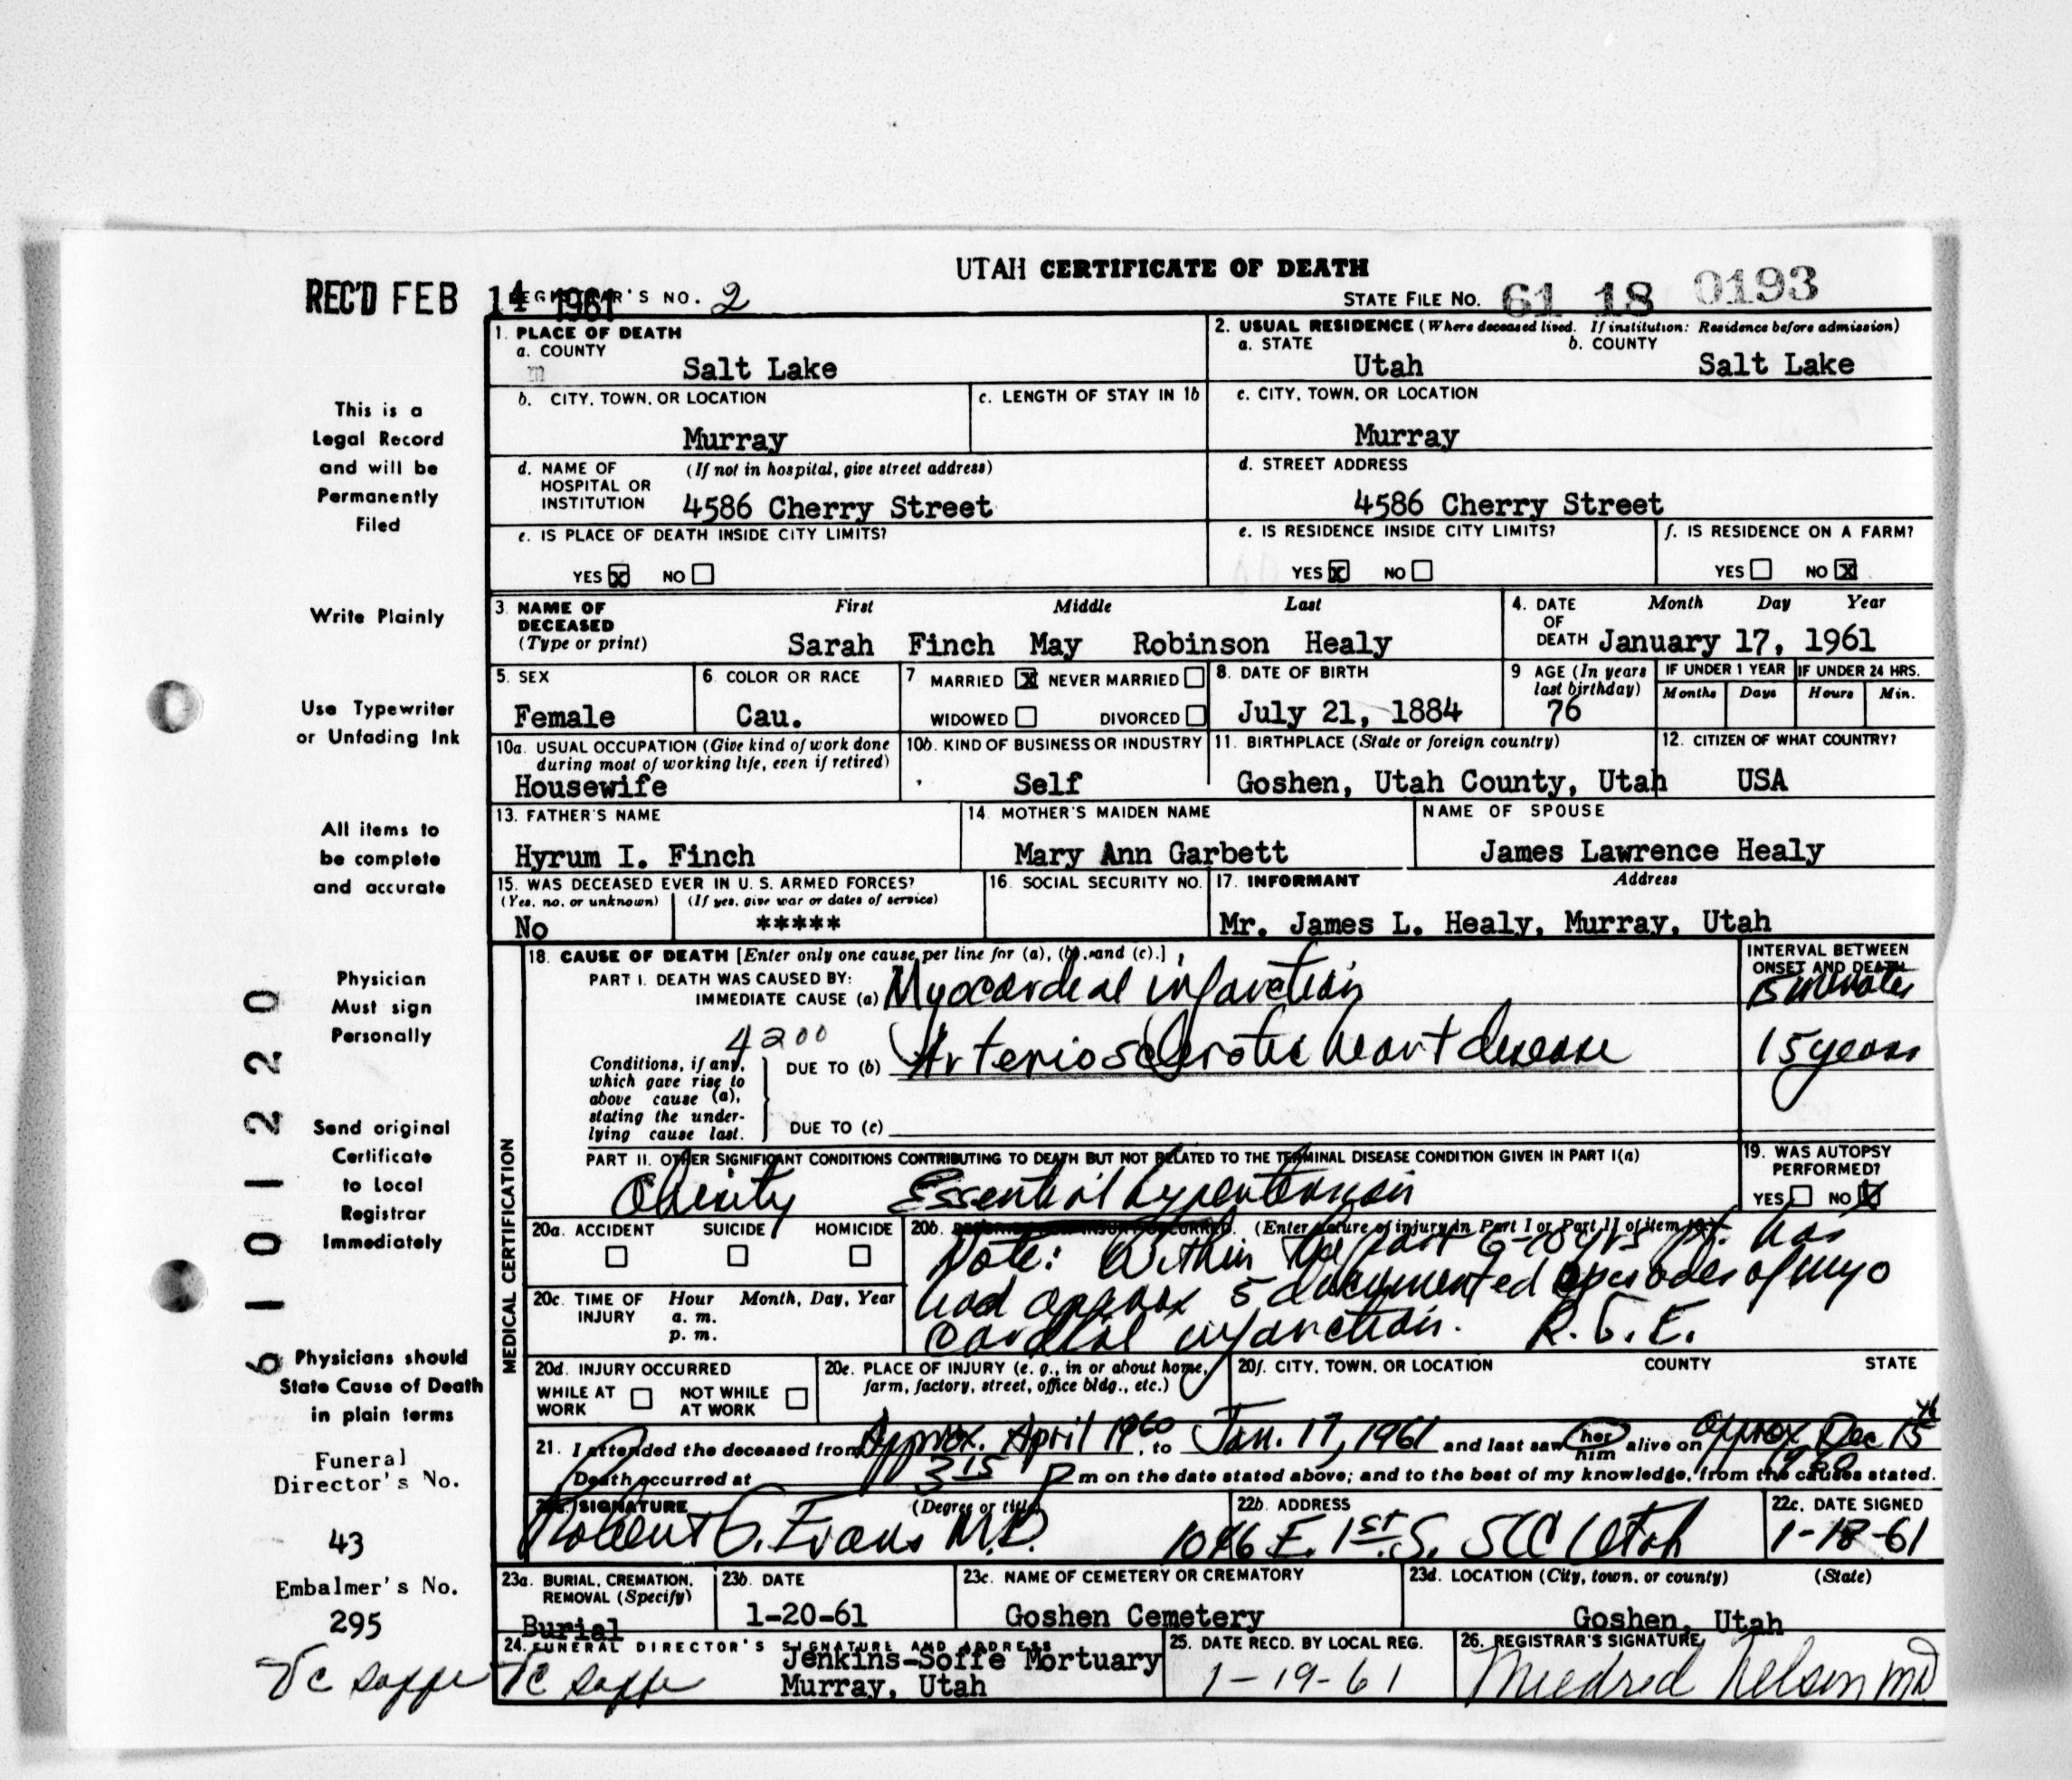 UTAH CERTIFICATE OF DEATH
REC'D FEB 14 1961 REGISTRAR'S NO. 2
STATE FILE NO. 61 18 0193
1. PLACE OF DEATH
a. COUNTY
m
Salt Lake
2. USUAL RESIDENCE (Where deceased lived. If institution: Residence before admission)
a. STATE b. COUNTY
Utah Salt Lake
b. CITY, TOWN, OR LOCATION
Murray
c. LENGTH OF STAY IN 1b
c. CITY, TOWN, OR LOCATION
Murray
d. NAME OF (If not in hospital, give street address)
HOSPITAL OR
INSTITUTION 4586 Cherry Street
d. STREET ADDRESS
4586 Cherry Street
e. IS PLACE OF DEATH INSIDE CITY LIMITS?
YES X NO
e. IS RESIDENCE INSIDE CITY LIMITS?
YES X NO
f. IS RESIDENCE ON A FARM?
YES NO X
3. NAME OF First Middle Last
DECEASED
(Type or print) Sarah Finch May Robinson Healy
4. DATE Month Day Year
OF
DEATH January 17, 1961
5. SEX
Female
6. COLOR OR RACE
Cau.
7 MARRIED X NEVER MARRIED
WIDOWED DIVORCED
8. DATE OF BIRTH
July 21, 1884
9 AGE (In years
last birthday)
76
IF UNDER 1 YEAR
Months Days
IF UNDER 24 HRS.
Hours Min.
10a. USUAL OCCUPATION (Give kind of work done
during most of working life, even if retired)
Housewife
10b. KIND OF BUSINESS OR INDUSTRY
Self
11. BIRTHPLACE (State or foreign country)
Goshen, Utah County, Utah
12. CITIZEN OF WHAT COUNTRY?
USA
13. FATHER'S NAME
Hyrum I. Finch
14. MOTHER'S MAIDEN NAME
Mary Ann Garbett
NAME OF SPOUSE
James Lawrence Healy
15. WAS DECEASED EVER IN U. S. ARMED FORCES?
(Yes, no, or unknown) (If yes, give war or dates of service)
No *****
16. SOCIAL SECURITY NO.
17. INFORMANT Address
Mr. James L. Healy, Murray, Utah
MEDICAL CERTIFICATION
18. CAUSE OF DEATH [Enter only one cause per line for (a), (b), and (c).]
PART I. DEATH WAS CAUSED BY:
IMMEDIATE CAUSE (a) Myocardeal infarction
INTERVAL BETWEEN
ONSET AND DEATH
15 minutes
4200
Conditions, if any,
which gave rise to
above cause (a),
stating the under-
lying cause last.
DUE TO (b) Arteriosclerotic heart disease 15 years
DUE TO (c)
PART II. OTHER SIGNIFICANT CONDITIONS CONTRIBUTING TO DEATH BUT NOT RELATED TO THE TERMINAL DISEASE CONDITION GIVEN IN PART I(a)
Obesity Essential hypertension
19. WAS AUTOPSY
PERFORMED?
YES NO X
20a. ACCIDENT SUICIDE HOMICIDE
20b. (Enter nature of injury in Part I or Part II of item 18.)
Note: Within the past 6-10 yrs pt. has
had approx 5 documented episodes of myo
cardial infarction. R.G.E.
20c. TIME OF Hour Month, Day, Year
INJURY a. m.
p. m.
20d. INJURY OCCURRED
WHILE AT NOT WHILE
WORK AT WORK
20e. PLACE OF INJURY (e. g., in or about home,
farm, factory, street, office bldg., etc.)
20f. CITY, TOWN, OR LOCATION COUNTY STATE
21. I attended the deceased from Approx. April 1960, to Jan. 17, 1961 and last saw her him alive on approx Dec 15th 1960
Death occurred at 3 15 P m on the date stated above; and to the best of my knowledge, from the causes stated.
22a. SIGNATURE (Degree or title)
Robert G. Evans M.D.
22b. ADDRESS
1046 E. 1st S. SLC Utah
22c. DATE SIGNED
1-18-61
23a. BURIAL, CREMATION,
REMOVAL (Specify)
Burial
23b. DATE
1-20-61
23c. NAME OF CEMETERY OR CREMATORY
Goshen Cemetery
23d. LOCATION (City, town, or county) (State)
Goshen, Utah
24. FUNERAL DIRECTOR'S SIGNATURE AND ADDRESS
Jenkins-Soffe Mortuary
Murray, Utah
25. DATE RECD. BY LOCAL REG.
1-19-61
26. REGISTRAR'S SIGNATURE
Mildred Nelson MD
This is a
Legal Record
and will be
Permanently
Filed
Write Plainly
Use Typewriter
or Unfading Ink
All items to
be complete
and accurate
Physician
Must sign
Personally
Send original
Certificate
to Local
Registrar
Immediately
Physicians should
State Cause of Death
in plain terms
Funeral
Director's No.
43
Embalmer's No.
295
6101220